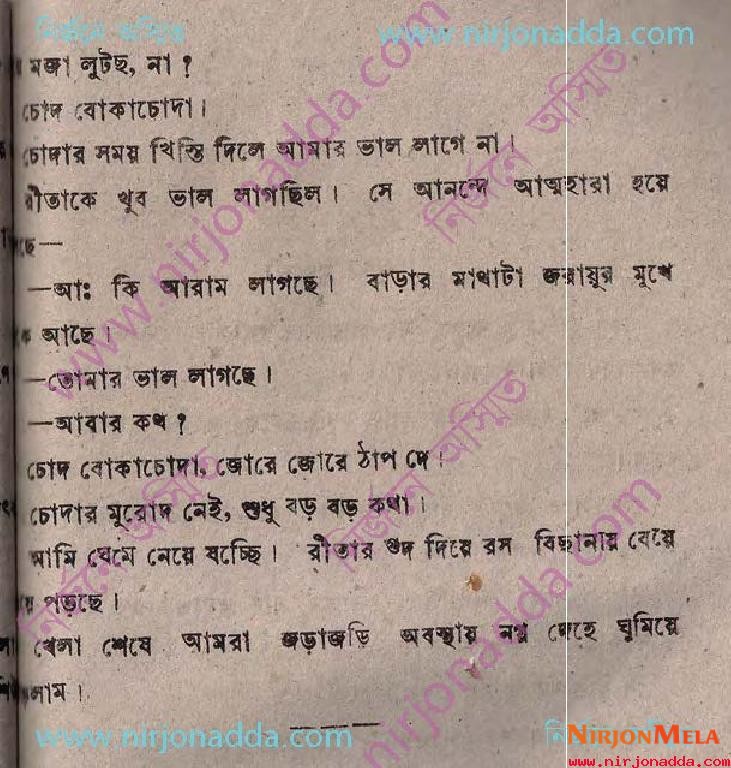 নির্জনে অস্মিত www.nirjonadda.com
মজা লুটছ, না?
চোদ বোকাচোদা।
চোদার সময় খিস্তি দিলে আমার ভাল লাগে না।
রীতাকে খুব ভাল লাগছিল। সে আনন্দে আত্মহারা হয়ে
ছে—
—আঃ কি আরাম লাগছে। বাড়ার মাথাটা জরায়ুর মুখে
আছে।
—তোমার ভাল লাগছে।
—আবার কথ?
চোদ বোকাচোদা, জোরে জোরে ঠাপ দে।
চোদার মুরোদ নেই, শুধু বড় বড় কথা।
আমি ঘেমে নেয়ে যচ্ছি। রীতার গুদ দিয়ে রস বিছানায় বেয়ে
পড়ছে।
খেলা শেষে আমরা জড়াজড়ি অবস্থায় নগ্ন দেহে ঘুমিয়ে
লাম।
www.nirjonadda.com
নির্জনে অস্মিত
www.nirjonadda.com
নির্জনে অস্মিত
www.nirjonadda.com
NIRJONMELA
www.nirjonadda.com